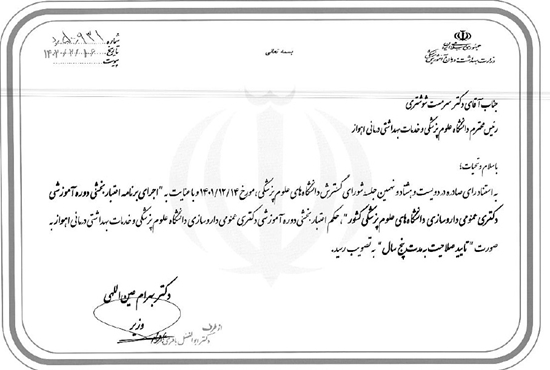 بسمه تعالی
جمهوری اسلامی ایران
وزارت بهداشت، درمان و آموزش پزشکی
شماره
تاریخ
پیوست
جناب آقای دکتر سرمست شوشتری
رئیس محترم دانشگاه علوم پزشکی و خدمات بهداشتی درمانی اهواز
با سلام و تحیات؛
به استناد رای صادره در دویست و هشتاد و نهمین جلسه شورای گسترش دانشگاه های علوم پزشکی، مورخ ۱۴۰۱/۱۲/۱۴ و با عنایت به "اجرای برنامه اعتباربخشی دوره آموزشی
دکتری عمومی داروسازی دانشگاه های علوم پزشکی کشور"، حکم اعتباربخشی دوره آموزشی دکتری عمومی داروسازی دانشگاه علوم پزشکی و خدمات بهداشتی درمانی اهواز به
صورت "تایید صلاحیت به مدت پنج سال" به تصویب رسید.
دکتر بهرام عین اللهی
وزیر
از طرف
دکتر ابوالفضل باقری فرد